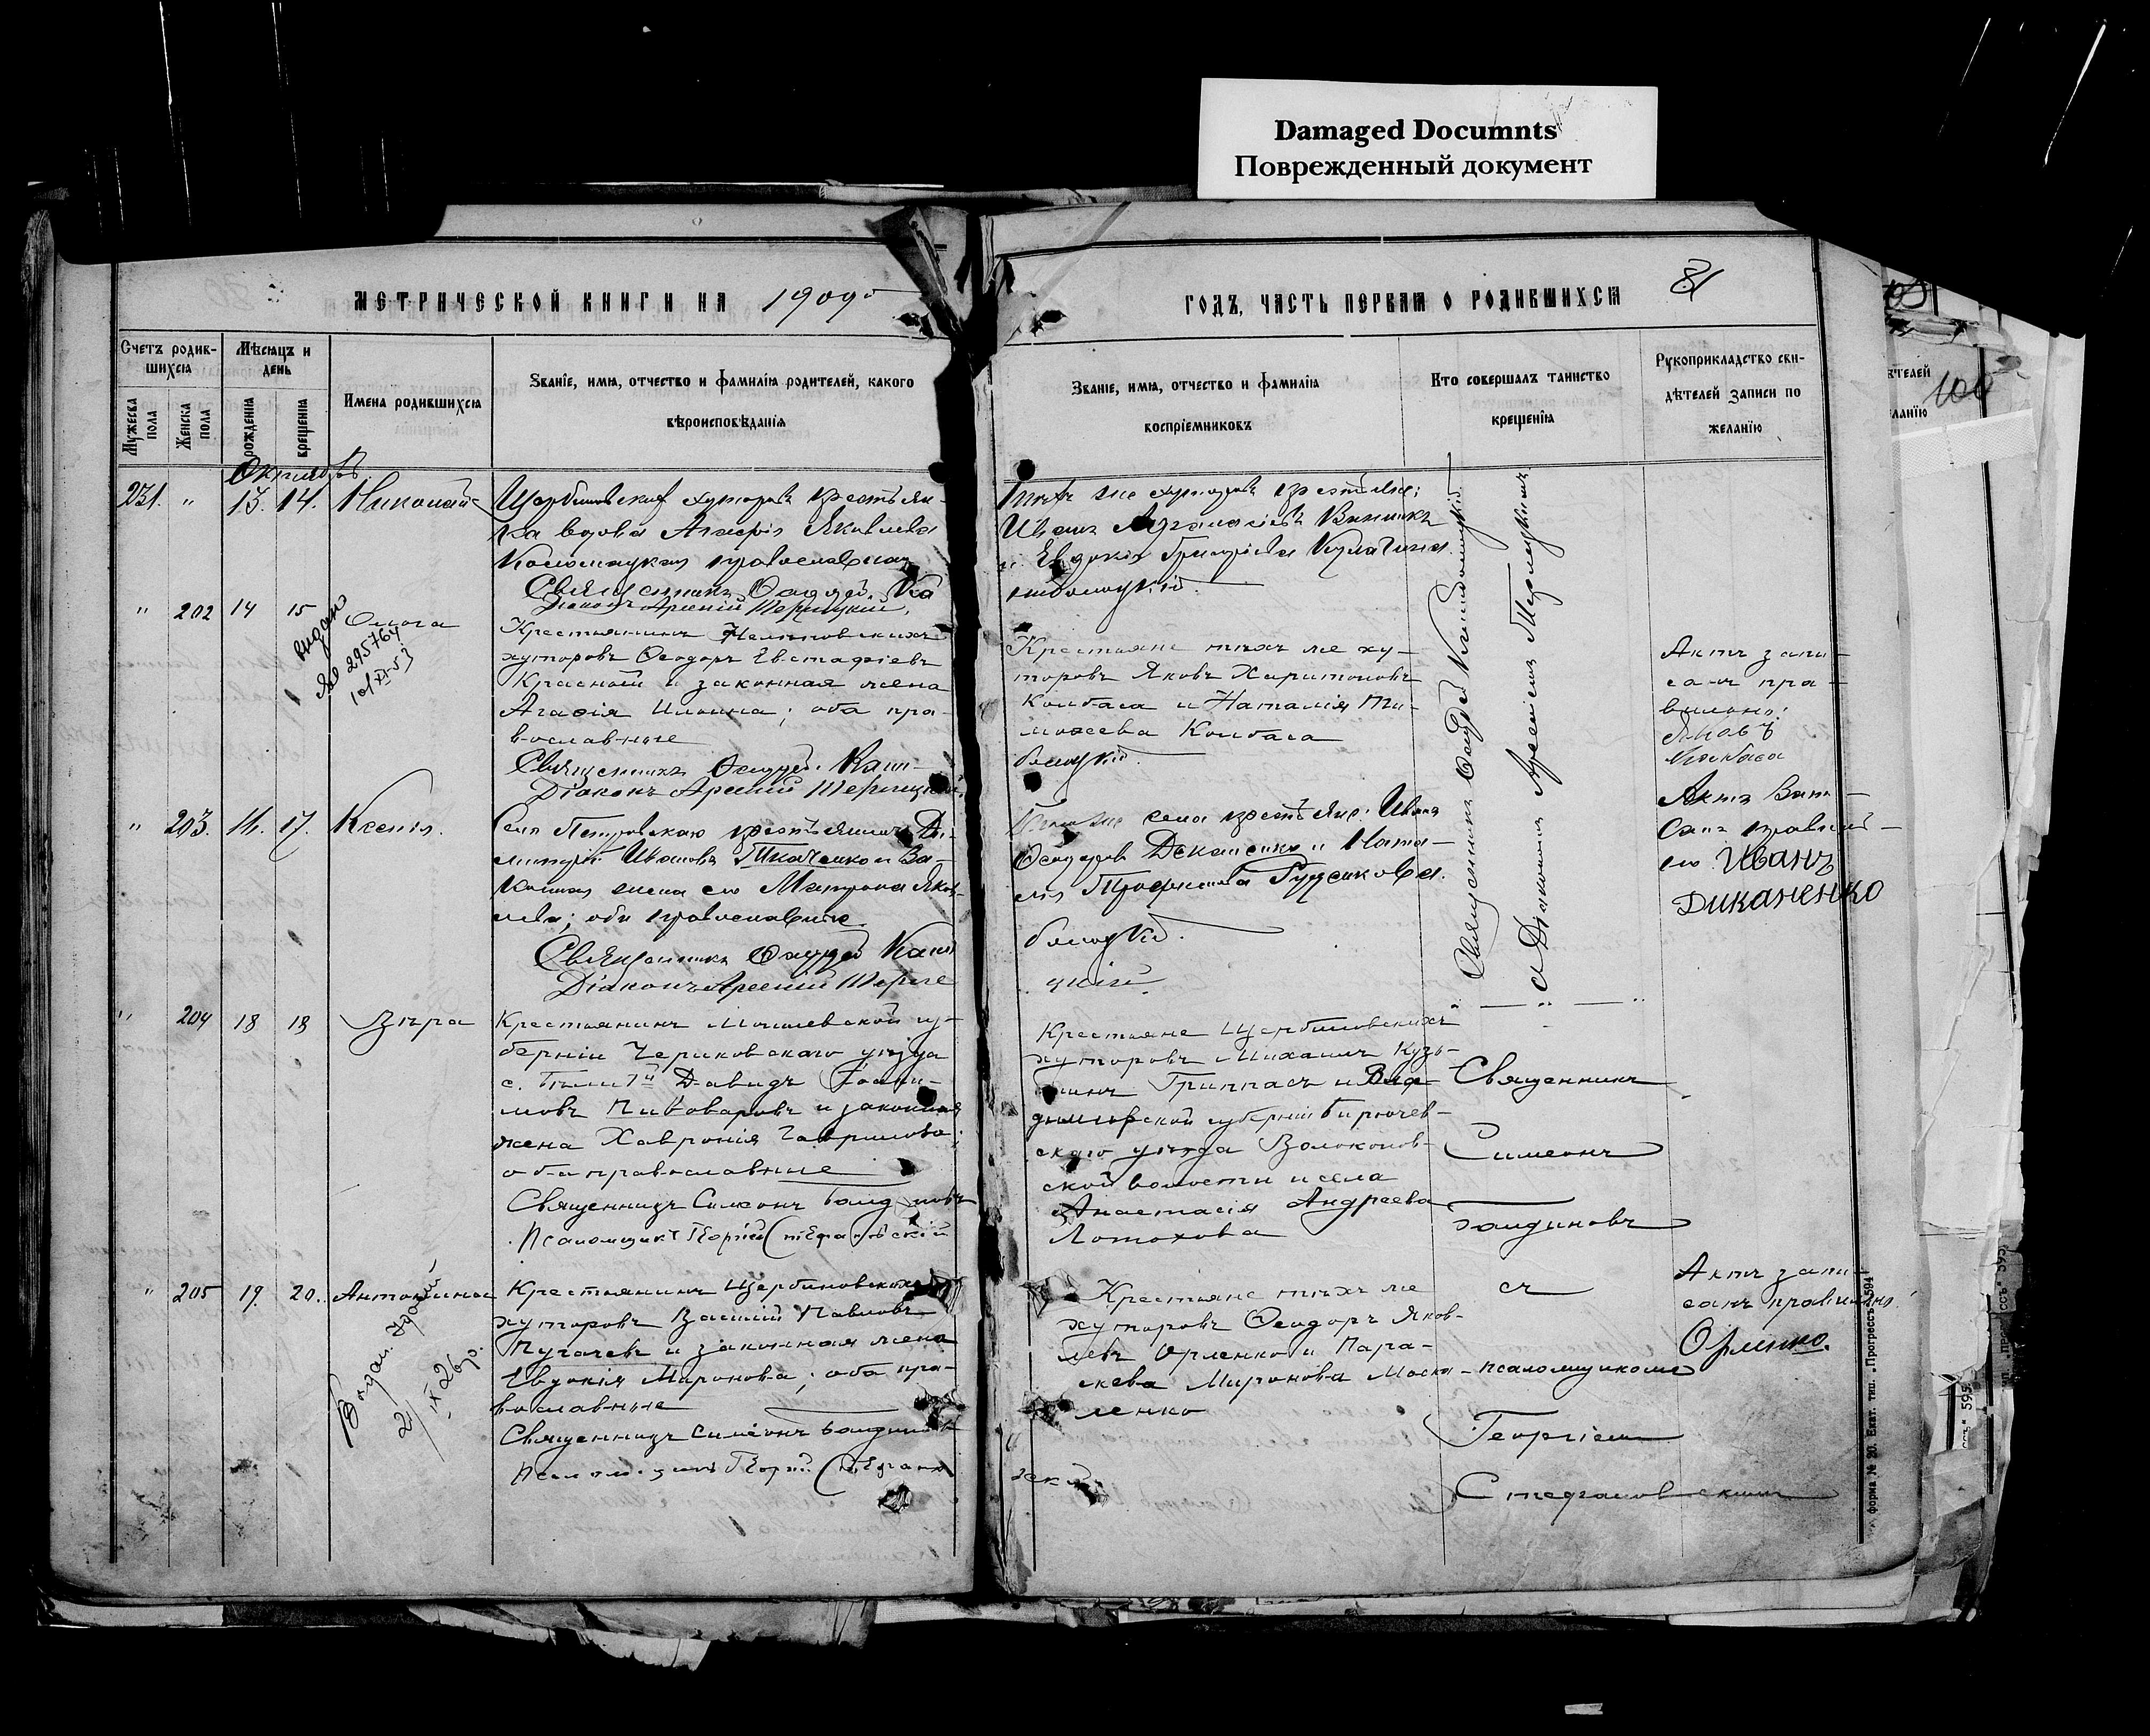 Damaged Documnts
Поврежденный документ
МЕТРИЧЕСКОЙ КНИГИ НА 1909
ГОДЪ, ЧАСТЬ ПЕРВАЯ О РОДИВШИХСЯ
81
Счетъ родив-
шихся
Мѣсяцъ и
день
Мужеска
пола
Женска
пола
рожденія
крещенія
Имена родившихся
Званіе, имя, отчество и фамилія родителей, какого
вѣроисповѣданія
Званіе, имя, отчество и фамилія
воспріемниковъ
Кто совершалъ таинство
крещенія
Рукоприкладство сви-
дѣтелей записи по
желанію
ѣтелей
ланію
100
Октябрь
231. " 13. 14. Николай
Щербиновских хуторовъ крестьян-
ка вдова Агафія Яковлева
Коломацкая православная
Священникъ Ѳеодоръ Ка
Діаконъ Арсеній Терлецкій.
Тѣхъ же хуторовъ крестьяне:
Иванъ Винникъ
и Евдокія Григорьева
" 202 14 15 Ольга
выдан
№ 295764
Крестьянинъ Нелиповскихъ
хуторовъ Ѳеодоръ Евстафіевъ
Красный и законная жена
Агафія Ильина; оба пра-
вославные
Священникъ Ѳеодоръ Кани-
Діаконъ Арсеній Терлецкій.
Крестьяне тѣхъ же ху-
торовъ Яковъ Харитоновъ
Колбаса и Наталія Ти-
моѳеева Колбаса
болоцкій.
Актъ запи-
санъ пра-
вильно:
Яковъ
Колбаса
" 203. 16. 17. Ксенія.
Села Петровскаго крестьянинъ Ди-
митрій Ивановъ Ткаченко и За-
конная жена его Матрона Яков-
лева; оба православные
Священникъ Ѳеодоръ Кани
Діаконъ Арсеній Терле
Того же села крестьяне: Иванъ
Ѳеодоровъ Деканенко и Ната-
лія Трофимова
болоцкій.
цкій.
Актъ запи-
санъ правиль-
но Иванъ
Диканенко
Священникъ Ѳеодоръ Каниболоцкій
съ Діакономъ Арсеніемъ Терлецкимъ
" 204 18 18 Вѣра
Крестьянинъ Могилевской гу-
берніи Чериковскаго уѣзда
Давидъ Іоаки-
мовъ Пивоваровъ и законная
жена Хавронія Гаврилова;
оба православные
Священникъ Симеонъ Балдиновъ
Псаломщикъ Георгій Стефановскій
Крестьяне Щербиновскихъ
хуторовъ Михаилъ Кузь-
минъ Гриппасъ и Вла-
димірской губерніи Бирючев-
скаго уѣзда Волоконов-
ской волости и села
Анастасія Андреева
Лотохова
Священникъ
Симеонъ
Балдиновъ
" 205 19. 20. Антонина
Крестьянинъ Щербиновскихъ
хуторовъ Василій Павловъ
Пугачевъ и законная жена
Евдокія Миронова; оба пра-
вославные
Священникъ Симеонъ Балдиновъ
Псаломщикъ Георгій Стефанов
Крестьяне тѣхъ же
хуторовъ Ѳеодоръ Яков-
левъ Орленко и Пара-
скева Миронова Моска-
ленко
скій
съ
псаломщикомъ
Георгіемъ
Стефановскимъ
Актъ запи-
санъ правильно:
Орленко.
форма № 20. Екат. тип. „Прогрессъ" 594